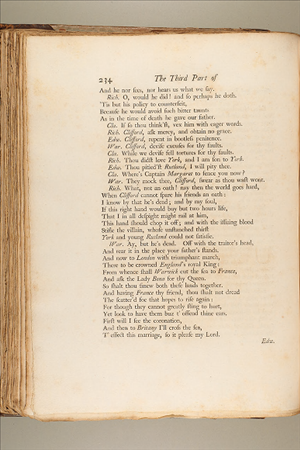 234 The Third Part of
And he nor sees, nor hears us what we say.
Rich. O, would he did! and so perhaps he doth.
'Tis but his policy to counterfeit,
Because he would avoid such bitter taunts
As in the time of death he gave our father.
Cla. If so thou think'st, vex him with eager words.
Rich. Clifford, ask mercy, and obtain no grace.
Edw. Clifford, repent in bootless penitence.
War. Clifford, devise excuses for thy faults.
Cla. While we devise fell tortures for thy faults.
Rich. Thou didst love York, and I am son to York.
Edw. Thou pitied'st Rutland, I will pity thee.
Cla. Where's Captain Margaret to fence you now?
War. They mock thee, Clifford, swear as thou wast wont.
Rich. What, not an oath! nay then the world goes hard,
When Clifford cannot spare his friends an oath:
I know by that he's dead; and by my soul,
If this right hand would buy but two hours life,
That I in all despight might rail at him,
This hand should chop it off; and with the issuing blood
Stifle the villain, whose unstanched thirst
York and young Rutland could not satisfie.
War. Ay, but he's dead. Off with the traitor's head,
And rear it in the place your father's stands.
And now to London with triumphant march,
There to be crowned England's royal King:
From whence shall Warwick cut the sea to France,
And ask the Lady Bona for thy Queen.
So shalt thou sinew both these lands together.
And having France thy friend, thou shalt not dread
The scatter'd foe that hopes to rise again:
For though they cannot greatly sting to hurt,
Yet look to have them buz t' offend thine ears.
First will I see the coronation,
And then to Britany I'll cross the sea,
T' effect this marriage, so it please my Lord.
Edw.